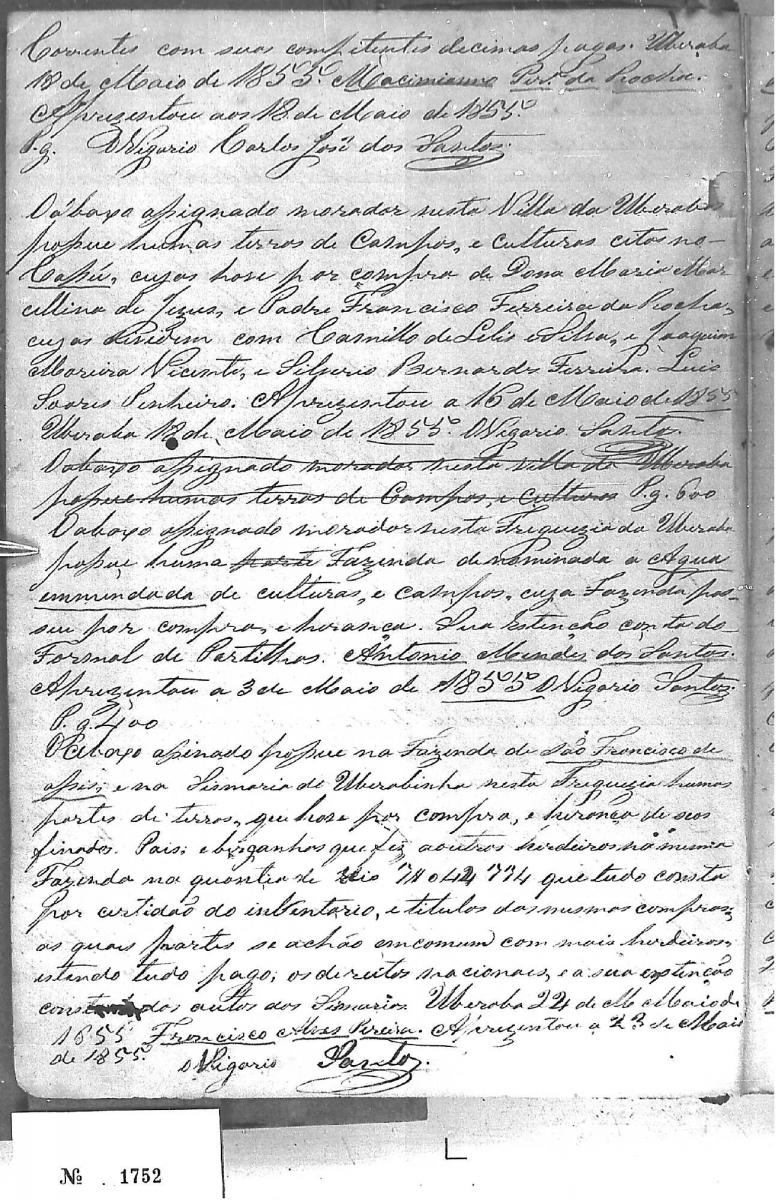 Correntes com suas competentes decimas pagas. Uberaba
18 de Maio de 1855. Macimianno Perª da Rocha.
Aprezentou aos 18 de Maio de 1855.
P.g. O Vigario Carlos José dos Santos.
O abaxo assignado morador nesta Villa da Uberaba
possue humas terras de Campos, e culturas citas no
Capú, cujas hove por compra de Dona Maria Mar
cellina de Jezus, e Padre Francisco Ferreira da Rocha,
cujas devidem com Camillo de Lelis e Silva, e Joaquim
Moreira Vicente, e Silverio Bernardes Ferreira. Luis
Soares Pinheiro. Aprezentou a 16 de Maio de 1855
Uberaba 18 de Maio de 1855. O Vigario Santos.
O abaxo assignado morador nesta villa da Uberaba
possue humas terras de Campos, e culturas P.g. 600
O abaxo assignado morador nesta Freguezia da Uberaba
possue huma parte Fazenda denominada a Agua
emmendada de culturas, e campos, cuja Fazenda pos-
sui por compra, e herança. Sua Estenção consta do
Formal de Partilhas. Antonio Mendes dos Santos.
Aprezentou a 3 de Maio de 1855 O Vigario Santos
P.g. 400
O abaxo asinado possue na Fazenda de São Francisco de
assis, e na Sismaria de Uberabinha nesta Freguezia humas
partes de terras, que hove por compra, e herança de seos
finados Pais; e barganhas que fez a outros herdeiros na mesma
Fazenda na quantia de reis que tudo consta
por certidão do inventario, e titulos das mesmas compras,
as quais partes se achão em comum com mais herdeiros,
estando tudo pago; os direitos nacionais, e a sua extenção
dos autos das Sismarias. Uberaba 22 de M Maio de
1855 Francisco Alves Pereira. Aprezentou a 23 de Maio
de 1855. O Vigario Santos.
Nº 1752